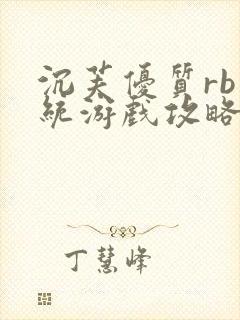 沉芙優質rb
統游戲攻略
丁慧峰